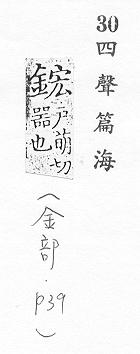 30 四聲篇海
鋐 戶萌切
器也
(金部．p39)